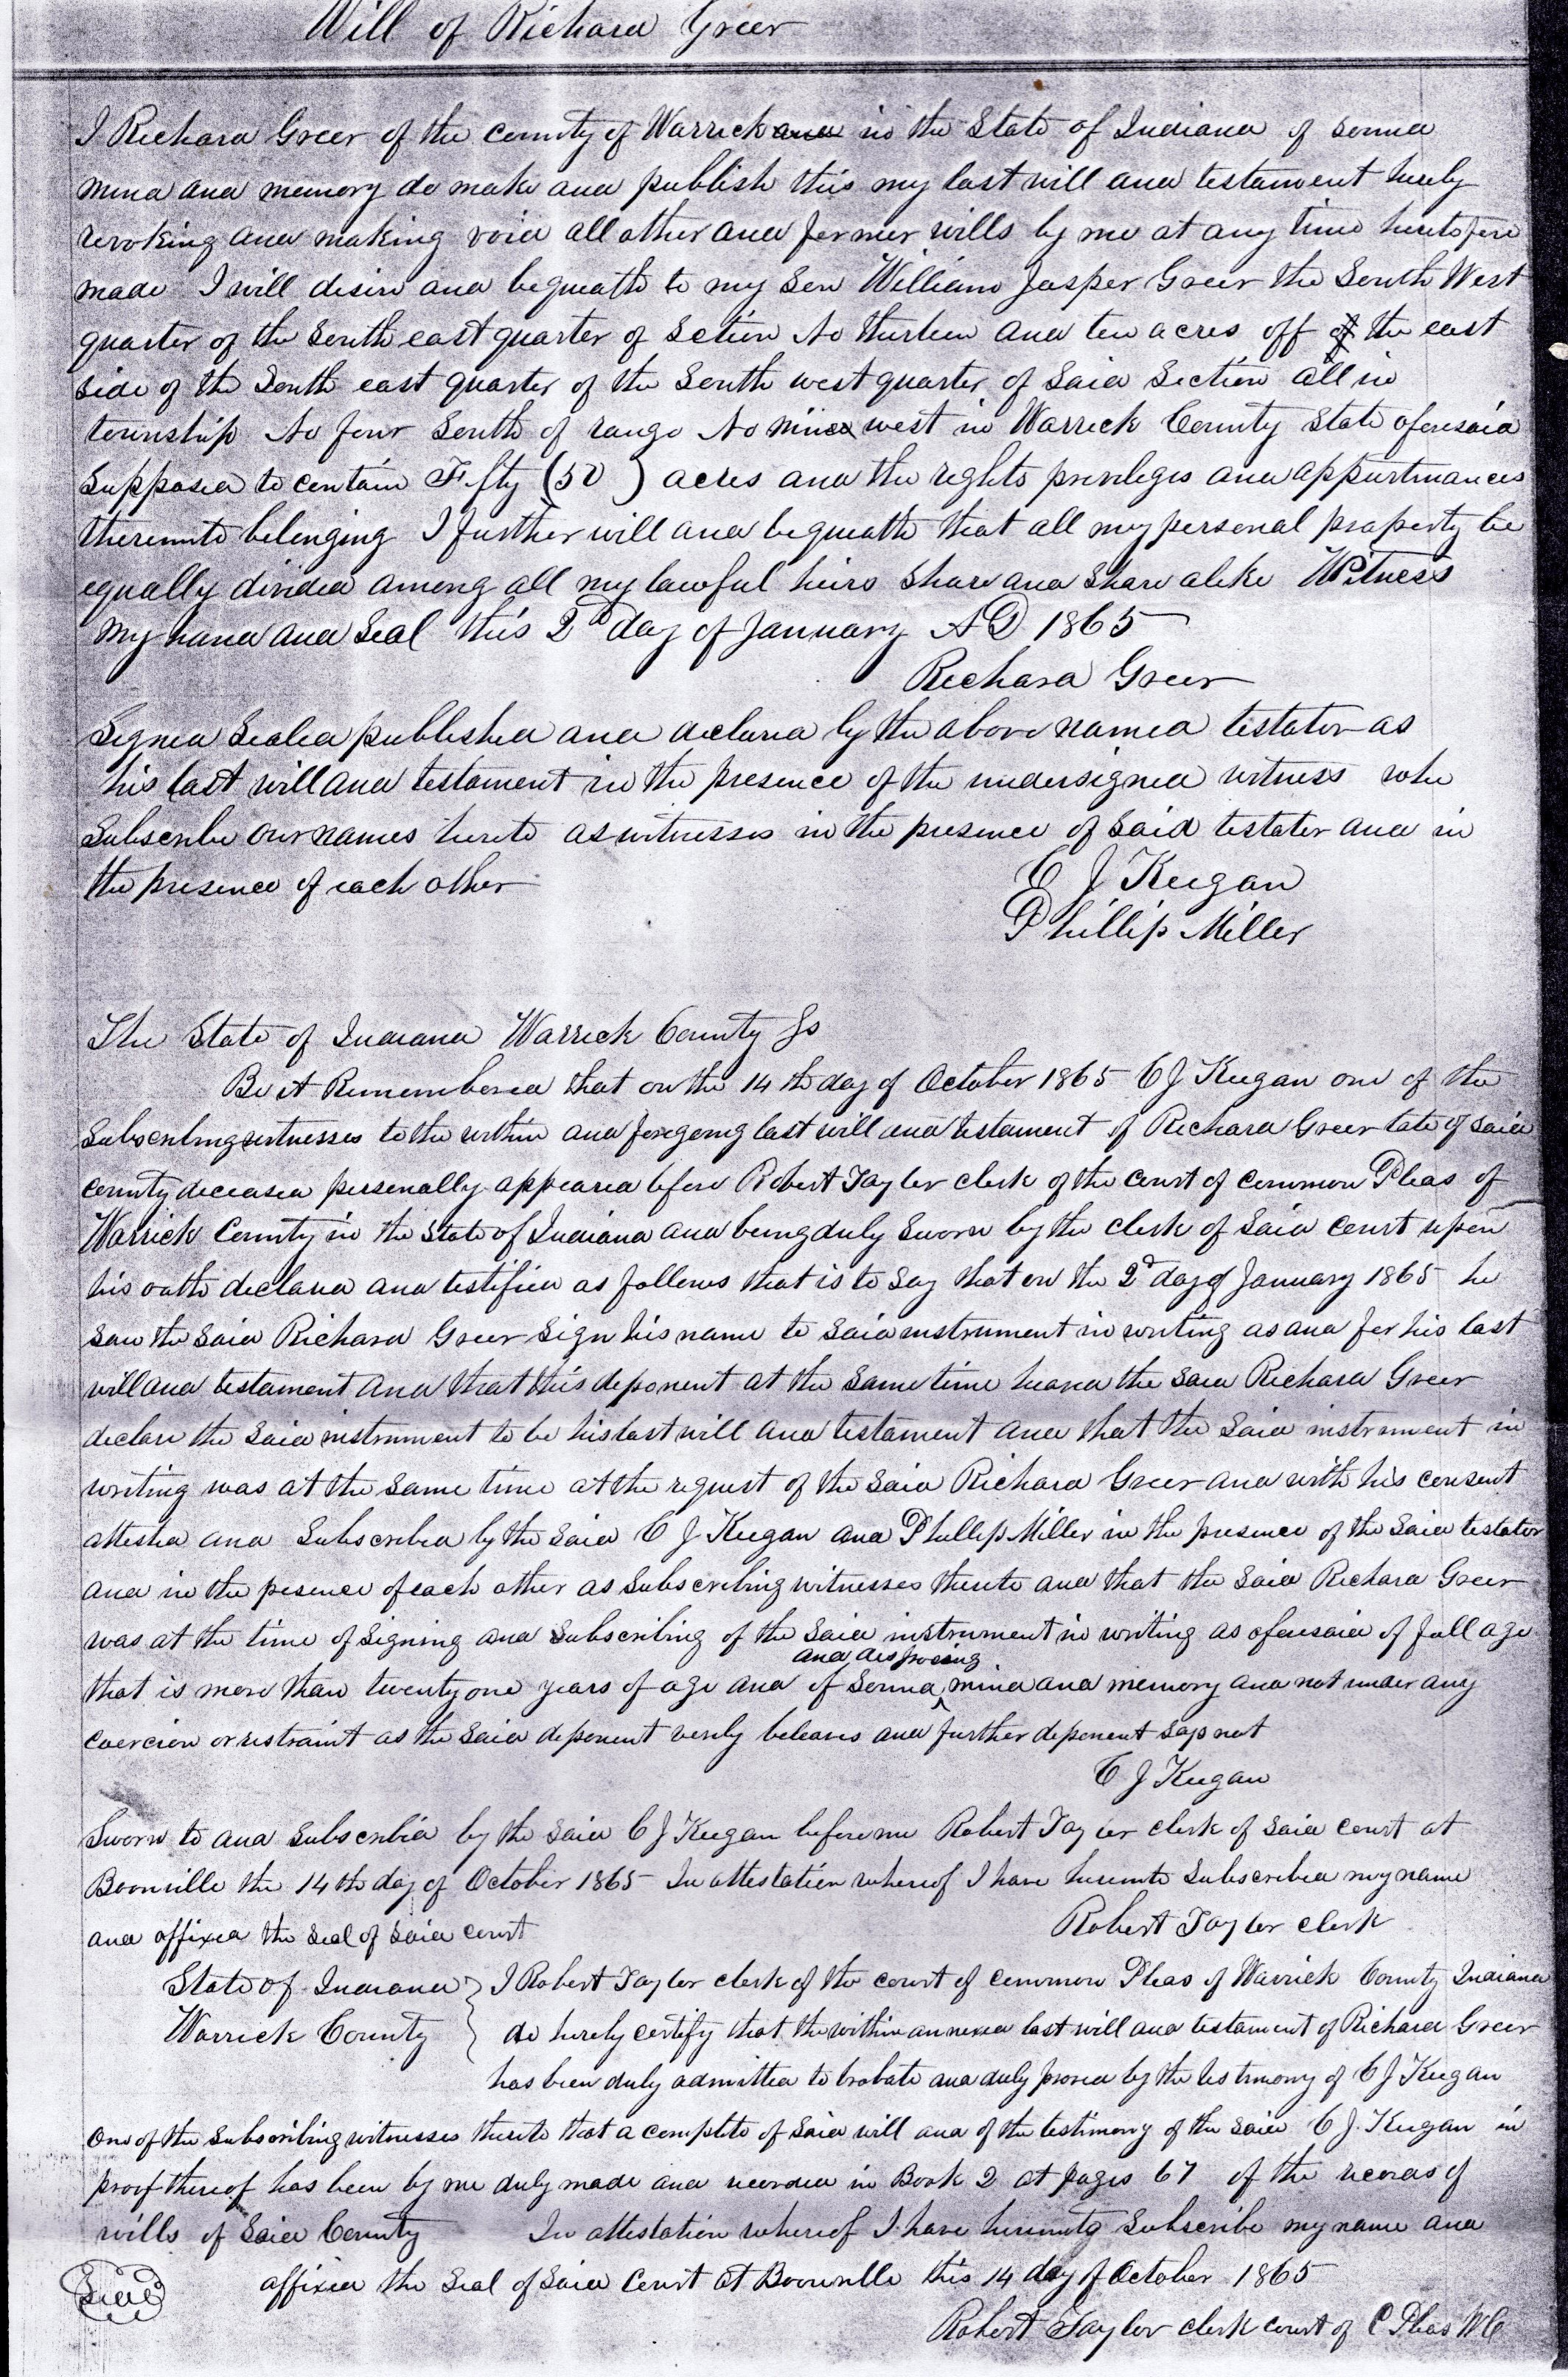 Will of Richard Greer
I Richard Greer of the county of Warrick and in the State of Indiana of sound
mind and memory do make and publish this my last will and testament hereby
revoking and making void all other and former wills by me at any time heretofore
made I will desire and bequeath to my Son William Jasper Greer the South West
quarter of the South east quarter of Section No thirteen and ten acres off of the east
side of the South east quarter of the South west quarter of Said Section all in
township No four South of range No nine west in Warrick County State aforesaid
Supposed to contain Fifty (50) acres and the rights privileges and appurtenances
thereunto belonging I further will and bequeath that all my personal property be
equally divided among all my lawful heirs Share and Share alike Witness
my hand and Seal this 2d day of January AD 1865
Richard Greer
Signed Sealed published and declared by the above named testator as
his last will and testament in the presence of the undersigned witness who
Subscribe our names hereto as witnesses in the presence of Said testator and in
the presence of each other
C J Keegan
Phillip Miller
The State of Indiana Warrick County Ss
Be it Remembered that on the 14th day of October 1865 C J Keegan one of the
Subscribing witnesses to the within and foregoing last will and testament of Richard Greer late of Said
County deceased personally appeared before Robert Taylor clerk of the court of common Pleas of
Warrick County in the State of Indiana and being duly Sworn by the clerk of Said Court upon
his oath declared and testified as follows that is to Say that on the 2d day of January 1865 he
Saw the Said Richard Greer Sign his name to Said instrument in writing as and for his last
will and testament and that this deponent at the Same time heard the Said Richard Greer
declare the Said instrument to be his last will and testament and that the Said instrument in
writing was at the Same time at the request of the Said Richard Greer and with his consent
attested and Subscribed by the Said C J Keegan and Phillip Miller in the presence of the Said testator
and in the pesence of each other as Subscribing witnesses thereto and that the Said Richard Greer
was at the time of Signing and Subscribing of the Said instrument in writing as aforesaid of full age
and disposing
that is more than twenty one years of age and of Sound mind and memory and not under any
coercion or restraint as the Said deponent verily believes and further deponent Says not
C J Keegan
Sworn to and Subscribed by the Said C J Keegan before me Robert Taylor clerk of Said Court at
Boonville the 14th day of October 1865 In attestation whereof I have hereunto Subscribed my name
and affixed the Seal of Said Court
Robert Taylor clerk
State of Indiana } I Robert Taylor clerk of the court of common Pleas of Warrick County Indiana
Warrick County } do hereby certify that the within annexed last will and testament of Richard Greer
has been duly admitted to probate and duly proved by the testimony of C J Keegan
One of the Subscribing witnesses thereto that a complete of Said will and of the testimony of the Said C J. Keegan in
proof thereof has been by me duly made and recorded in Book 2 at pages 67 of the records of
wills of Said County In attestation whereof I have hereunto Subscribe my name and
affixed the Seal of Said Court at Boonville this 14 day of October 1865
Seal
Robert Taylor clerk court of C Pleas W C